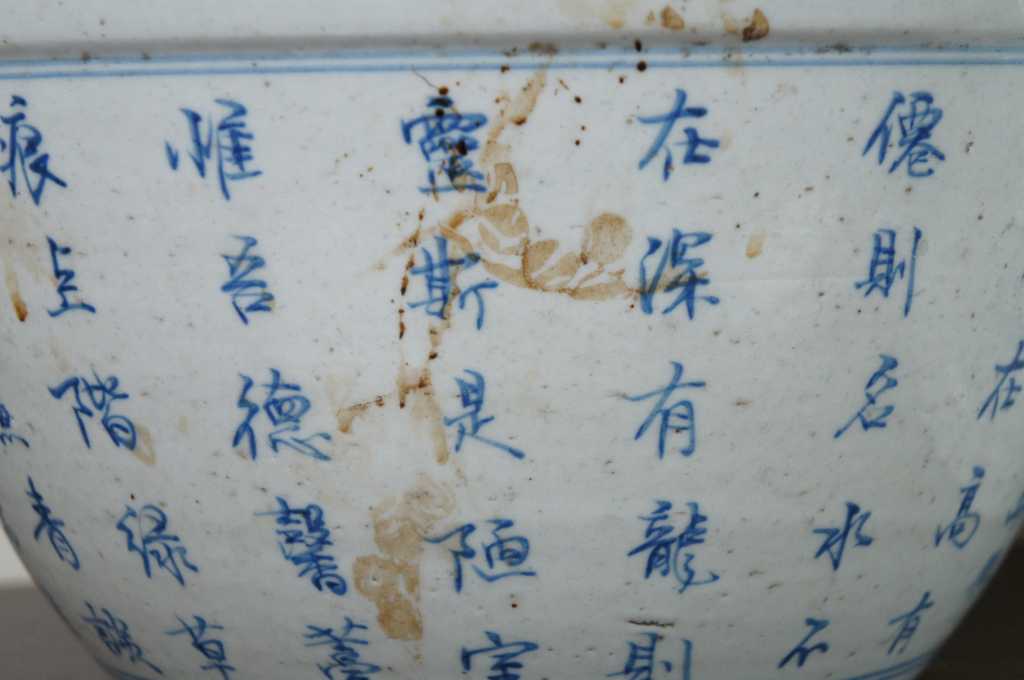 在高有
僊則名水不
在深有龍則
靈斯是陋室
惟吾德馨
痕上階綠草
青談